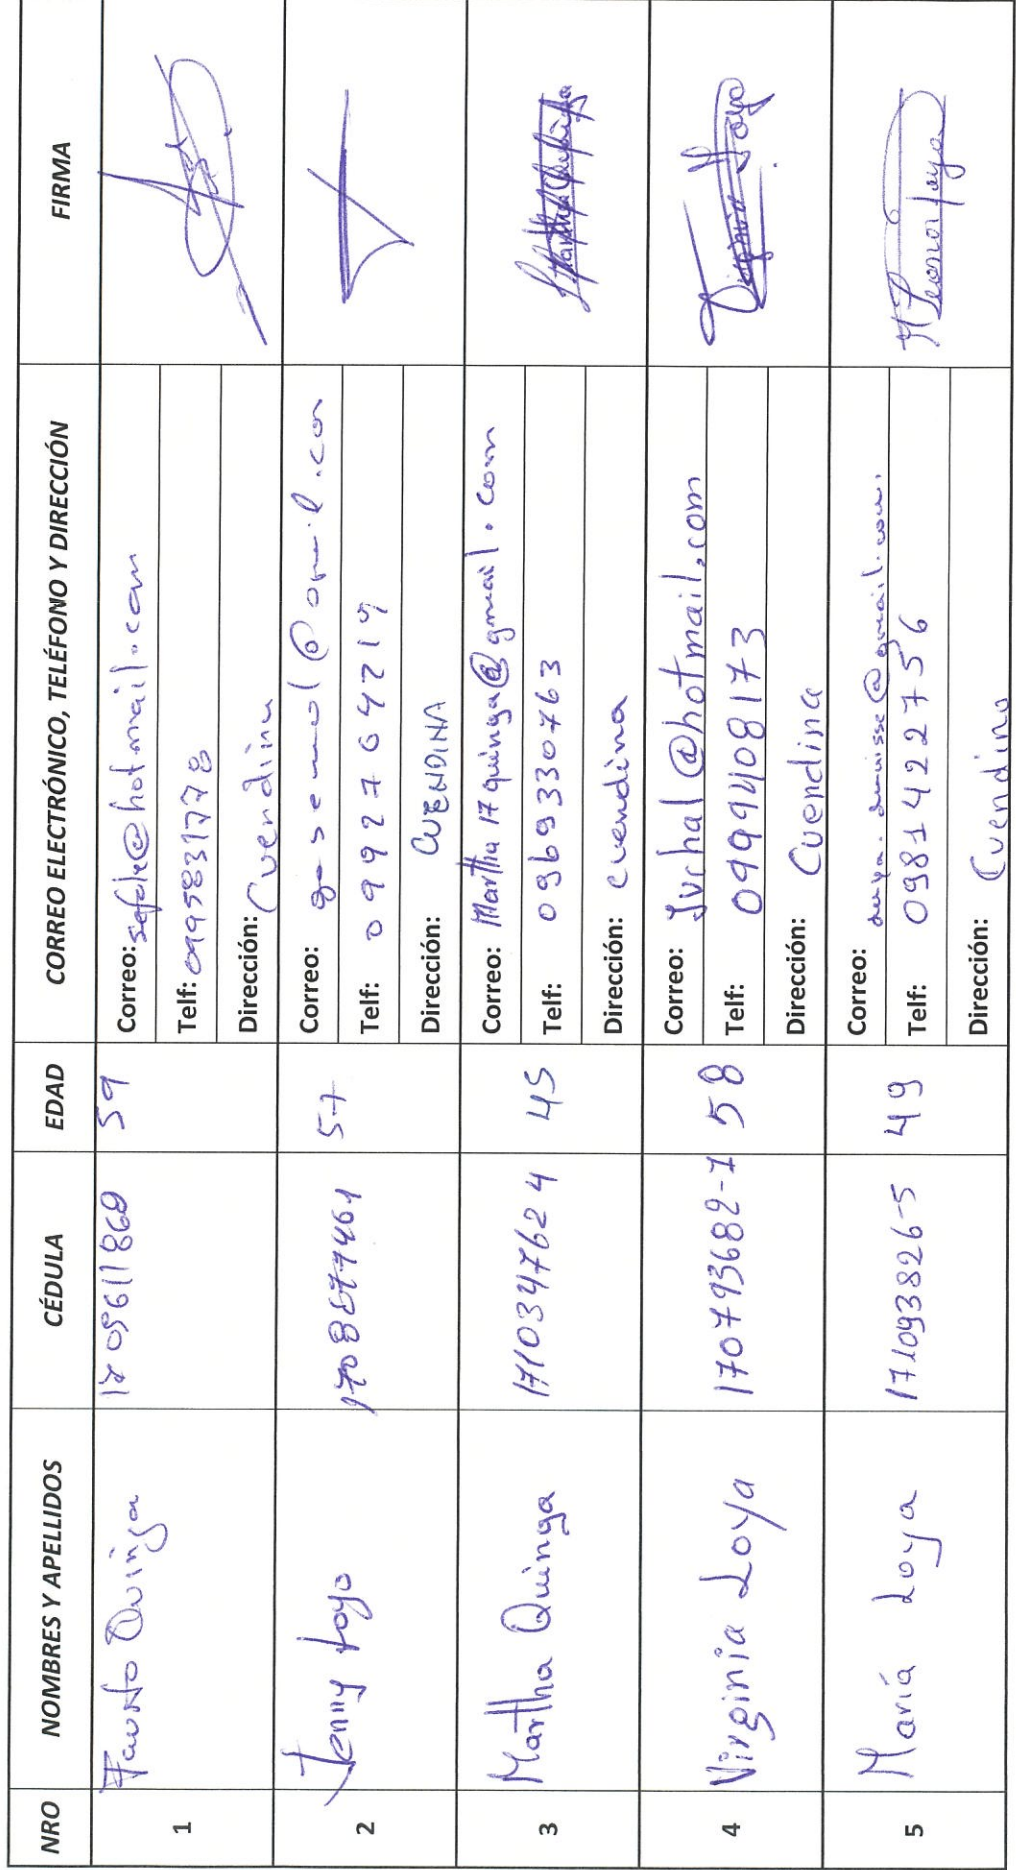 NRO NOMBRES Y APELLIDOS CÉDULA EDAD CORREO ELECTRÓNICO, TELÉFONO Y DIRECCIÓN FIRMA
1 Fausto Quinga 59
Correo: @hotmail.com
Telf: 0995831778
Dirección: Cuendina
2 Jenny Loya 57
Correo:
Telf: 0992764219
Dirección: CUENDINA
3 Martha Quinga 1710347624 45
Correo: Martha17quinga@gmail.com
Telf: 0969330763
Dirección: Cuendina
Martha Quinga
4 Virginia Loya 170793682-1 58
Correo: Juchal@hotmail.com
Telf: 0999408173
Dirección: Cuendina
Virginia Loya
5 María Loya 171093826-5 49
Correo: @gmail.com.
Telf: 0981422756
Dirección: Cuendina
M Leonor Loya